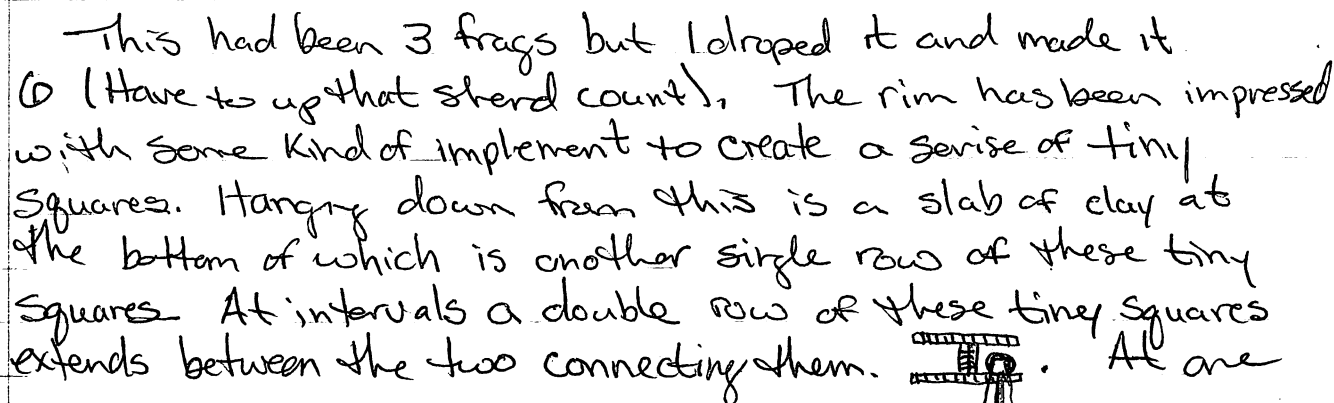 This had been 3 frags but I droped it and made it
6 (Have to up that sherd count). The rim has been impressed
with some kind of implement to create a serise of tiny
squares. Hanging down from this is a slab of clay at
the bottom of which is another single row of these tiny
squares. At intervals a double row of these tiny squares
extends between the two connecting them. . At one